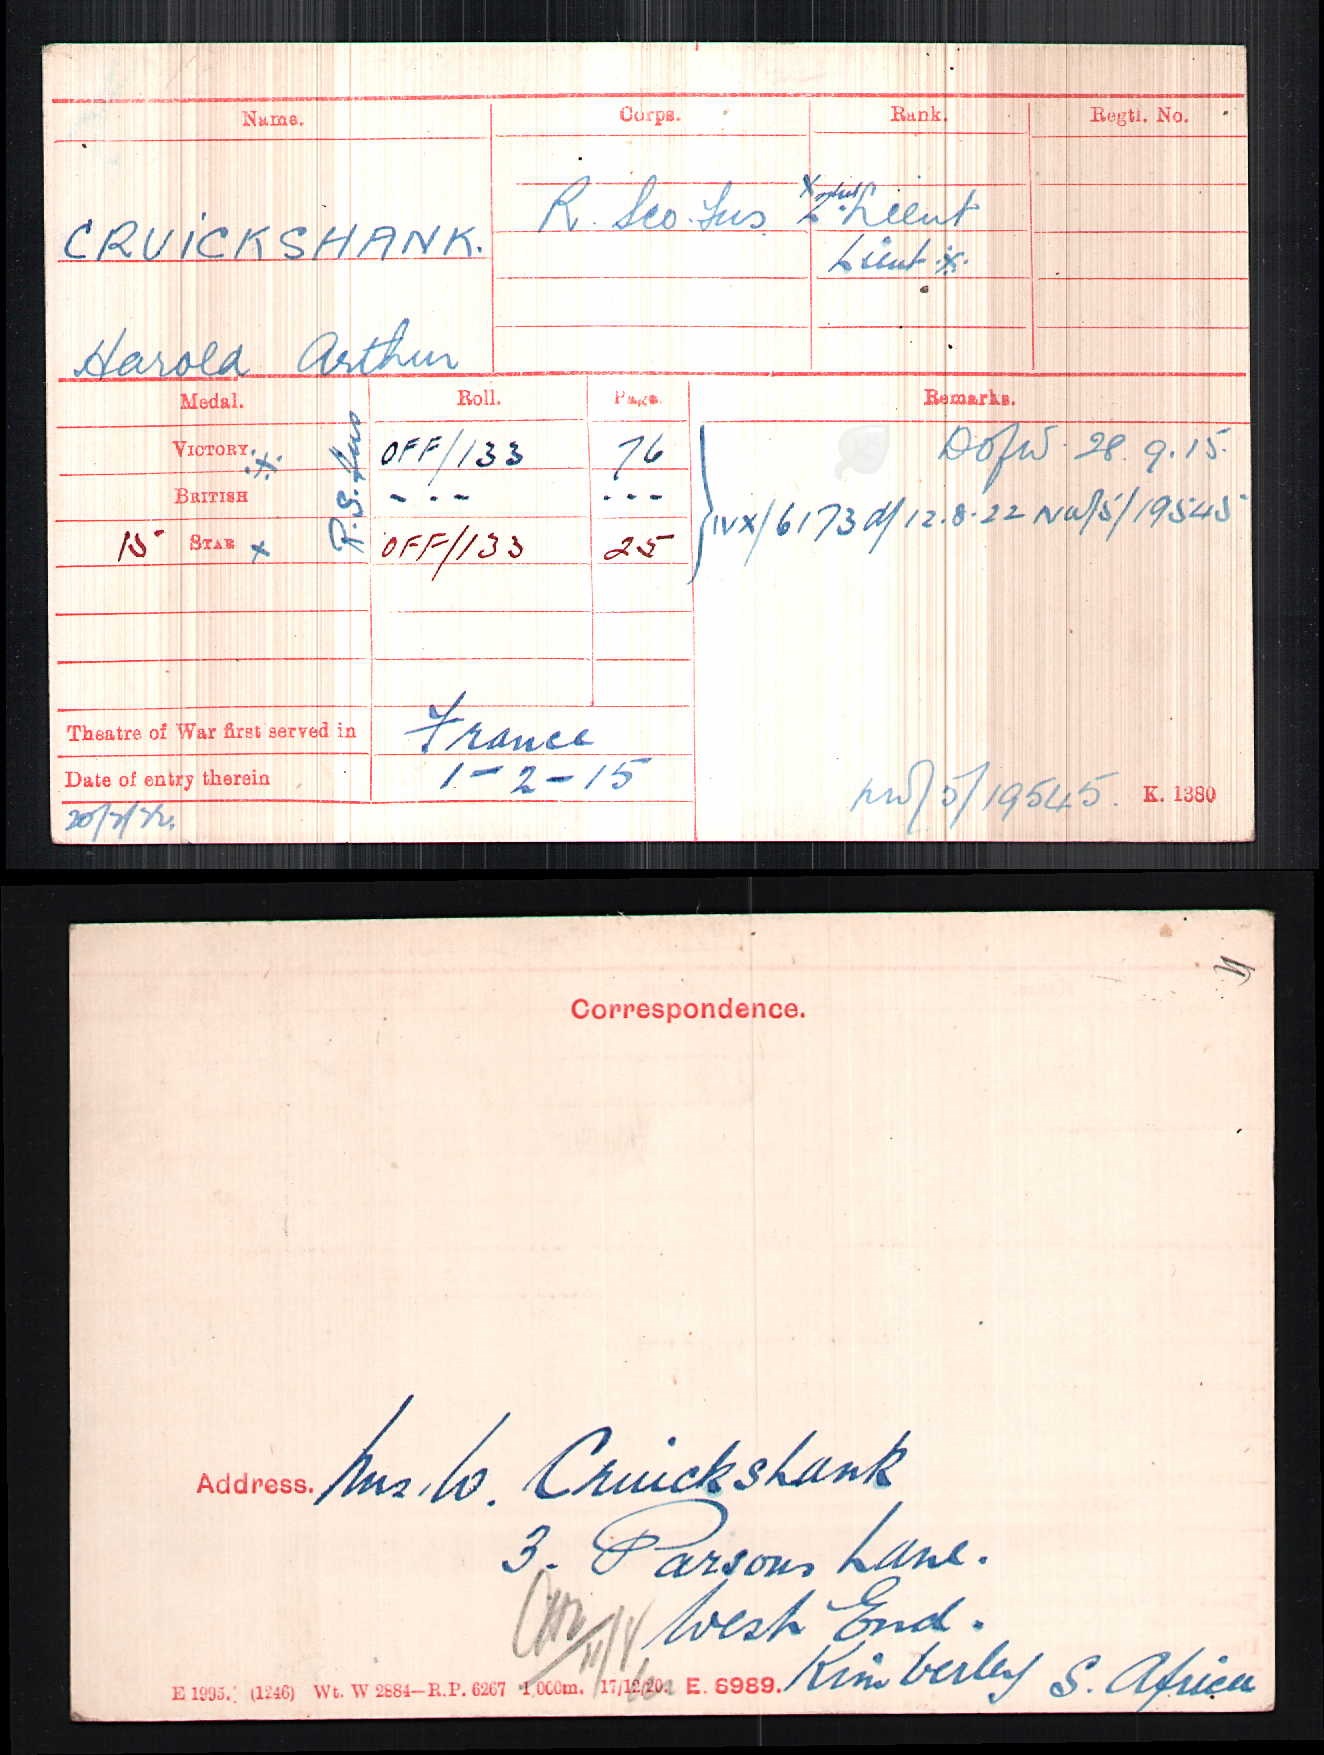 Name. Corps. Rank. Regtl. No.
CRUICKSHANK. R. Sco. Fus. X 2/Lieut
Lieut ※
Harold Arthur
Medal. Roll. Page. Remarks.
VICTORY. ※ R.S. Fus OFF/133 76 D of W. 28.9.15.
BRITISH - . - - - - IVX/6173 d/12.8.22 NW/5/19545
15 STAR X OFF/133 25
Theatre of War first served in France
Date of entry therein 1-2-15
NW/5/19545. K. 1380
Correspondence.
Address. Mrs. W. Cruickshank
3. Parsons Lane.
West End.
Kimberley S. Africa
E 1995. (1246) Wt. W 2884—R.P. 6267 1,000m. 17/12/20. E. 6989.